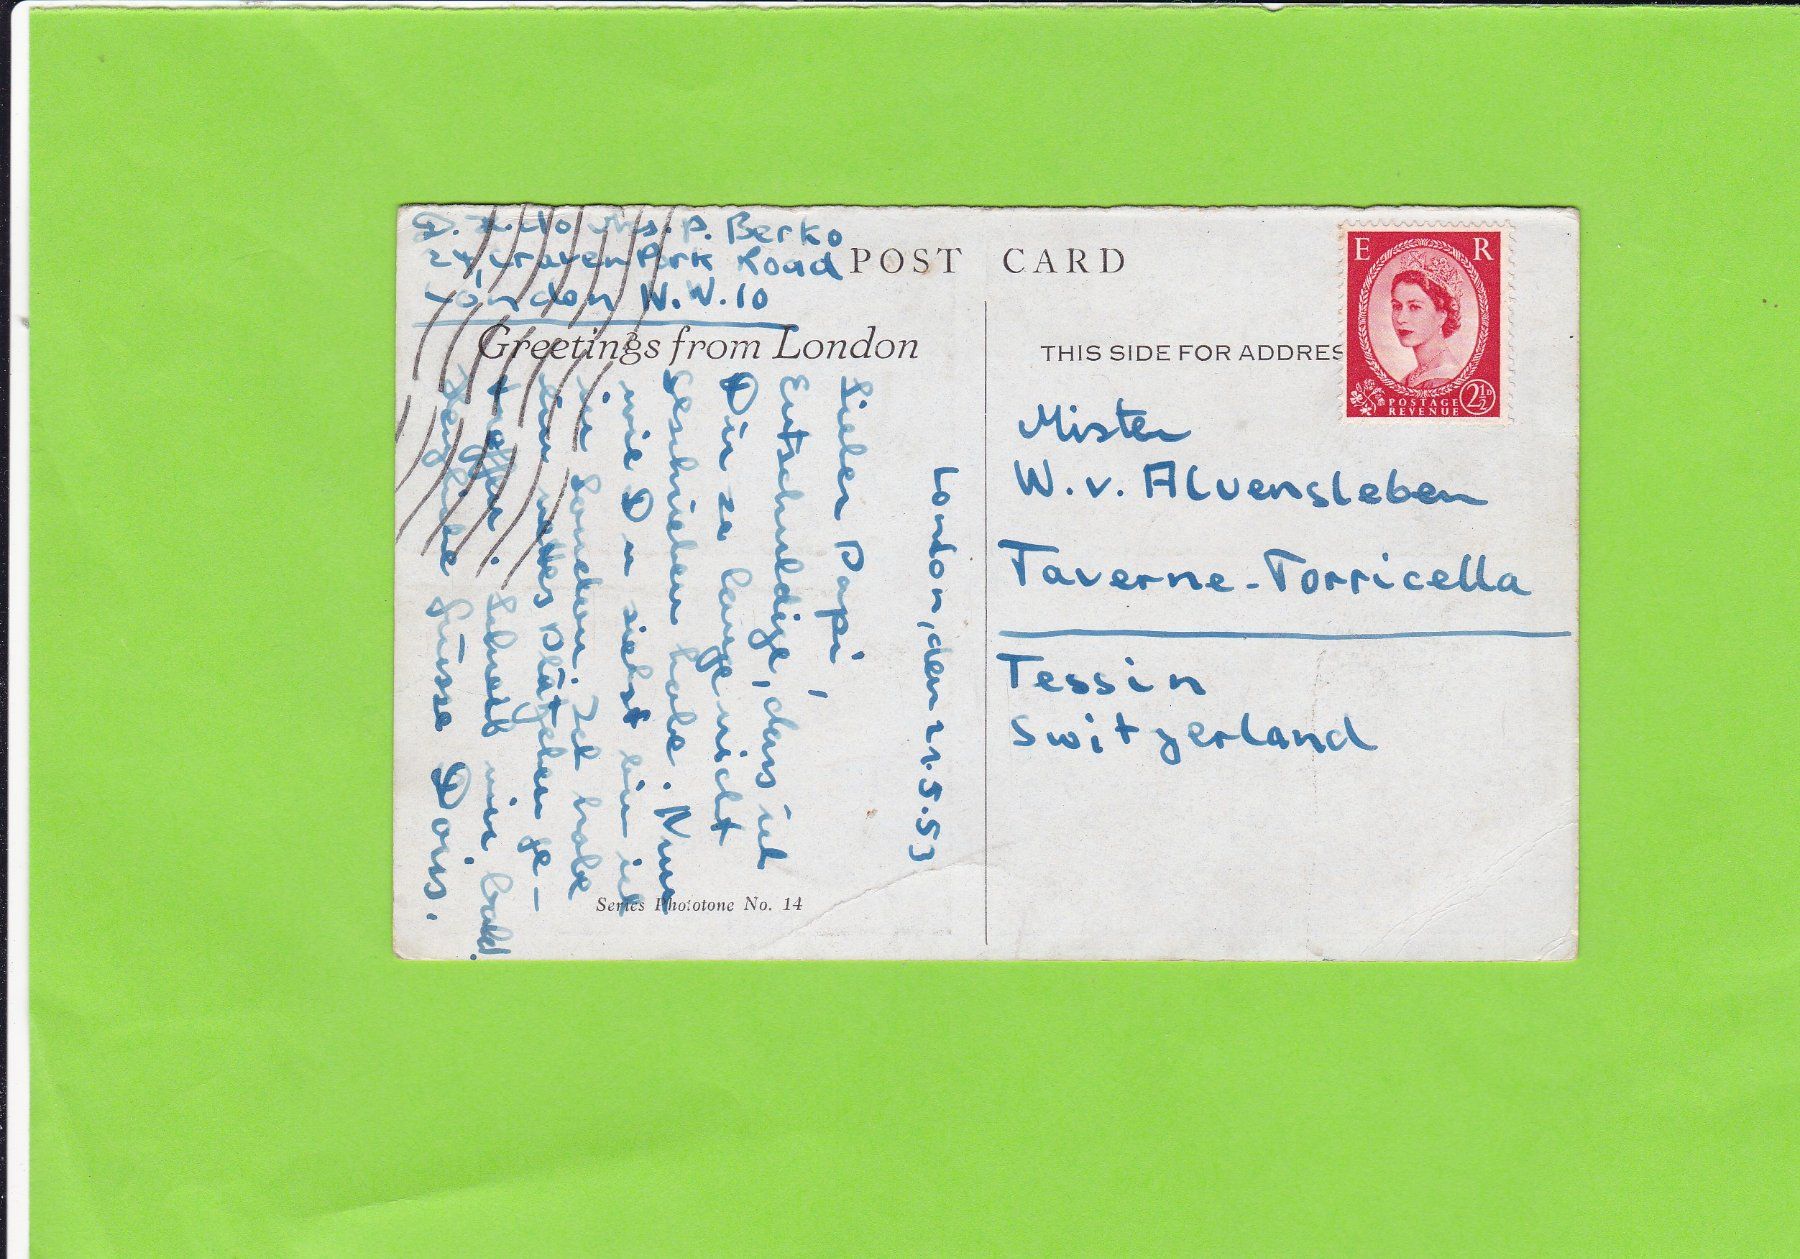 D. Z. c/o Mrs. P. Berko
24, Craven Park Road
London N.W. 10
POST CARD
Greetings from London
THIS SIDE FOR ADDRES
E R
POSTAGE
REVENUE
2½D
Mister
W. v. Alvensleben
Taverne-Torricella
Tessin
Switzerland
London, den 21.5.53
Lieber Papi,
Entschuldige, dass ich
Dir so lange nicht
geschrieben habe. Nun
wie Du siehst bin ich
in London. Ich habe
ein nettes Plätzchen ge-
troffen. Schreib mir bald
Herzliche Grüsse Doris.
Series Phototone No. 14